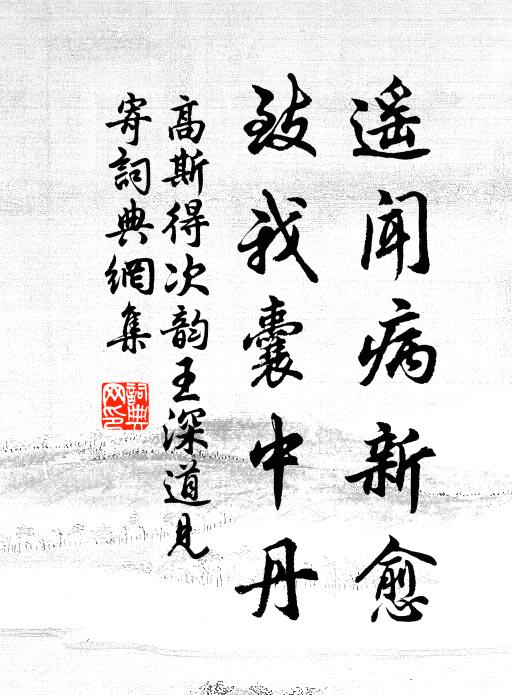 遥闻病新愈
致我囊中丹
高斯得次韵王深道见
寄词典網集
詞典网印